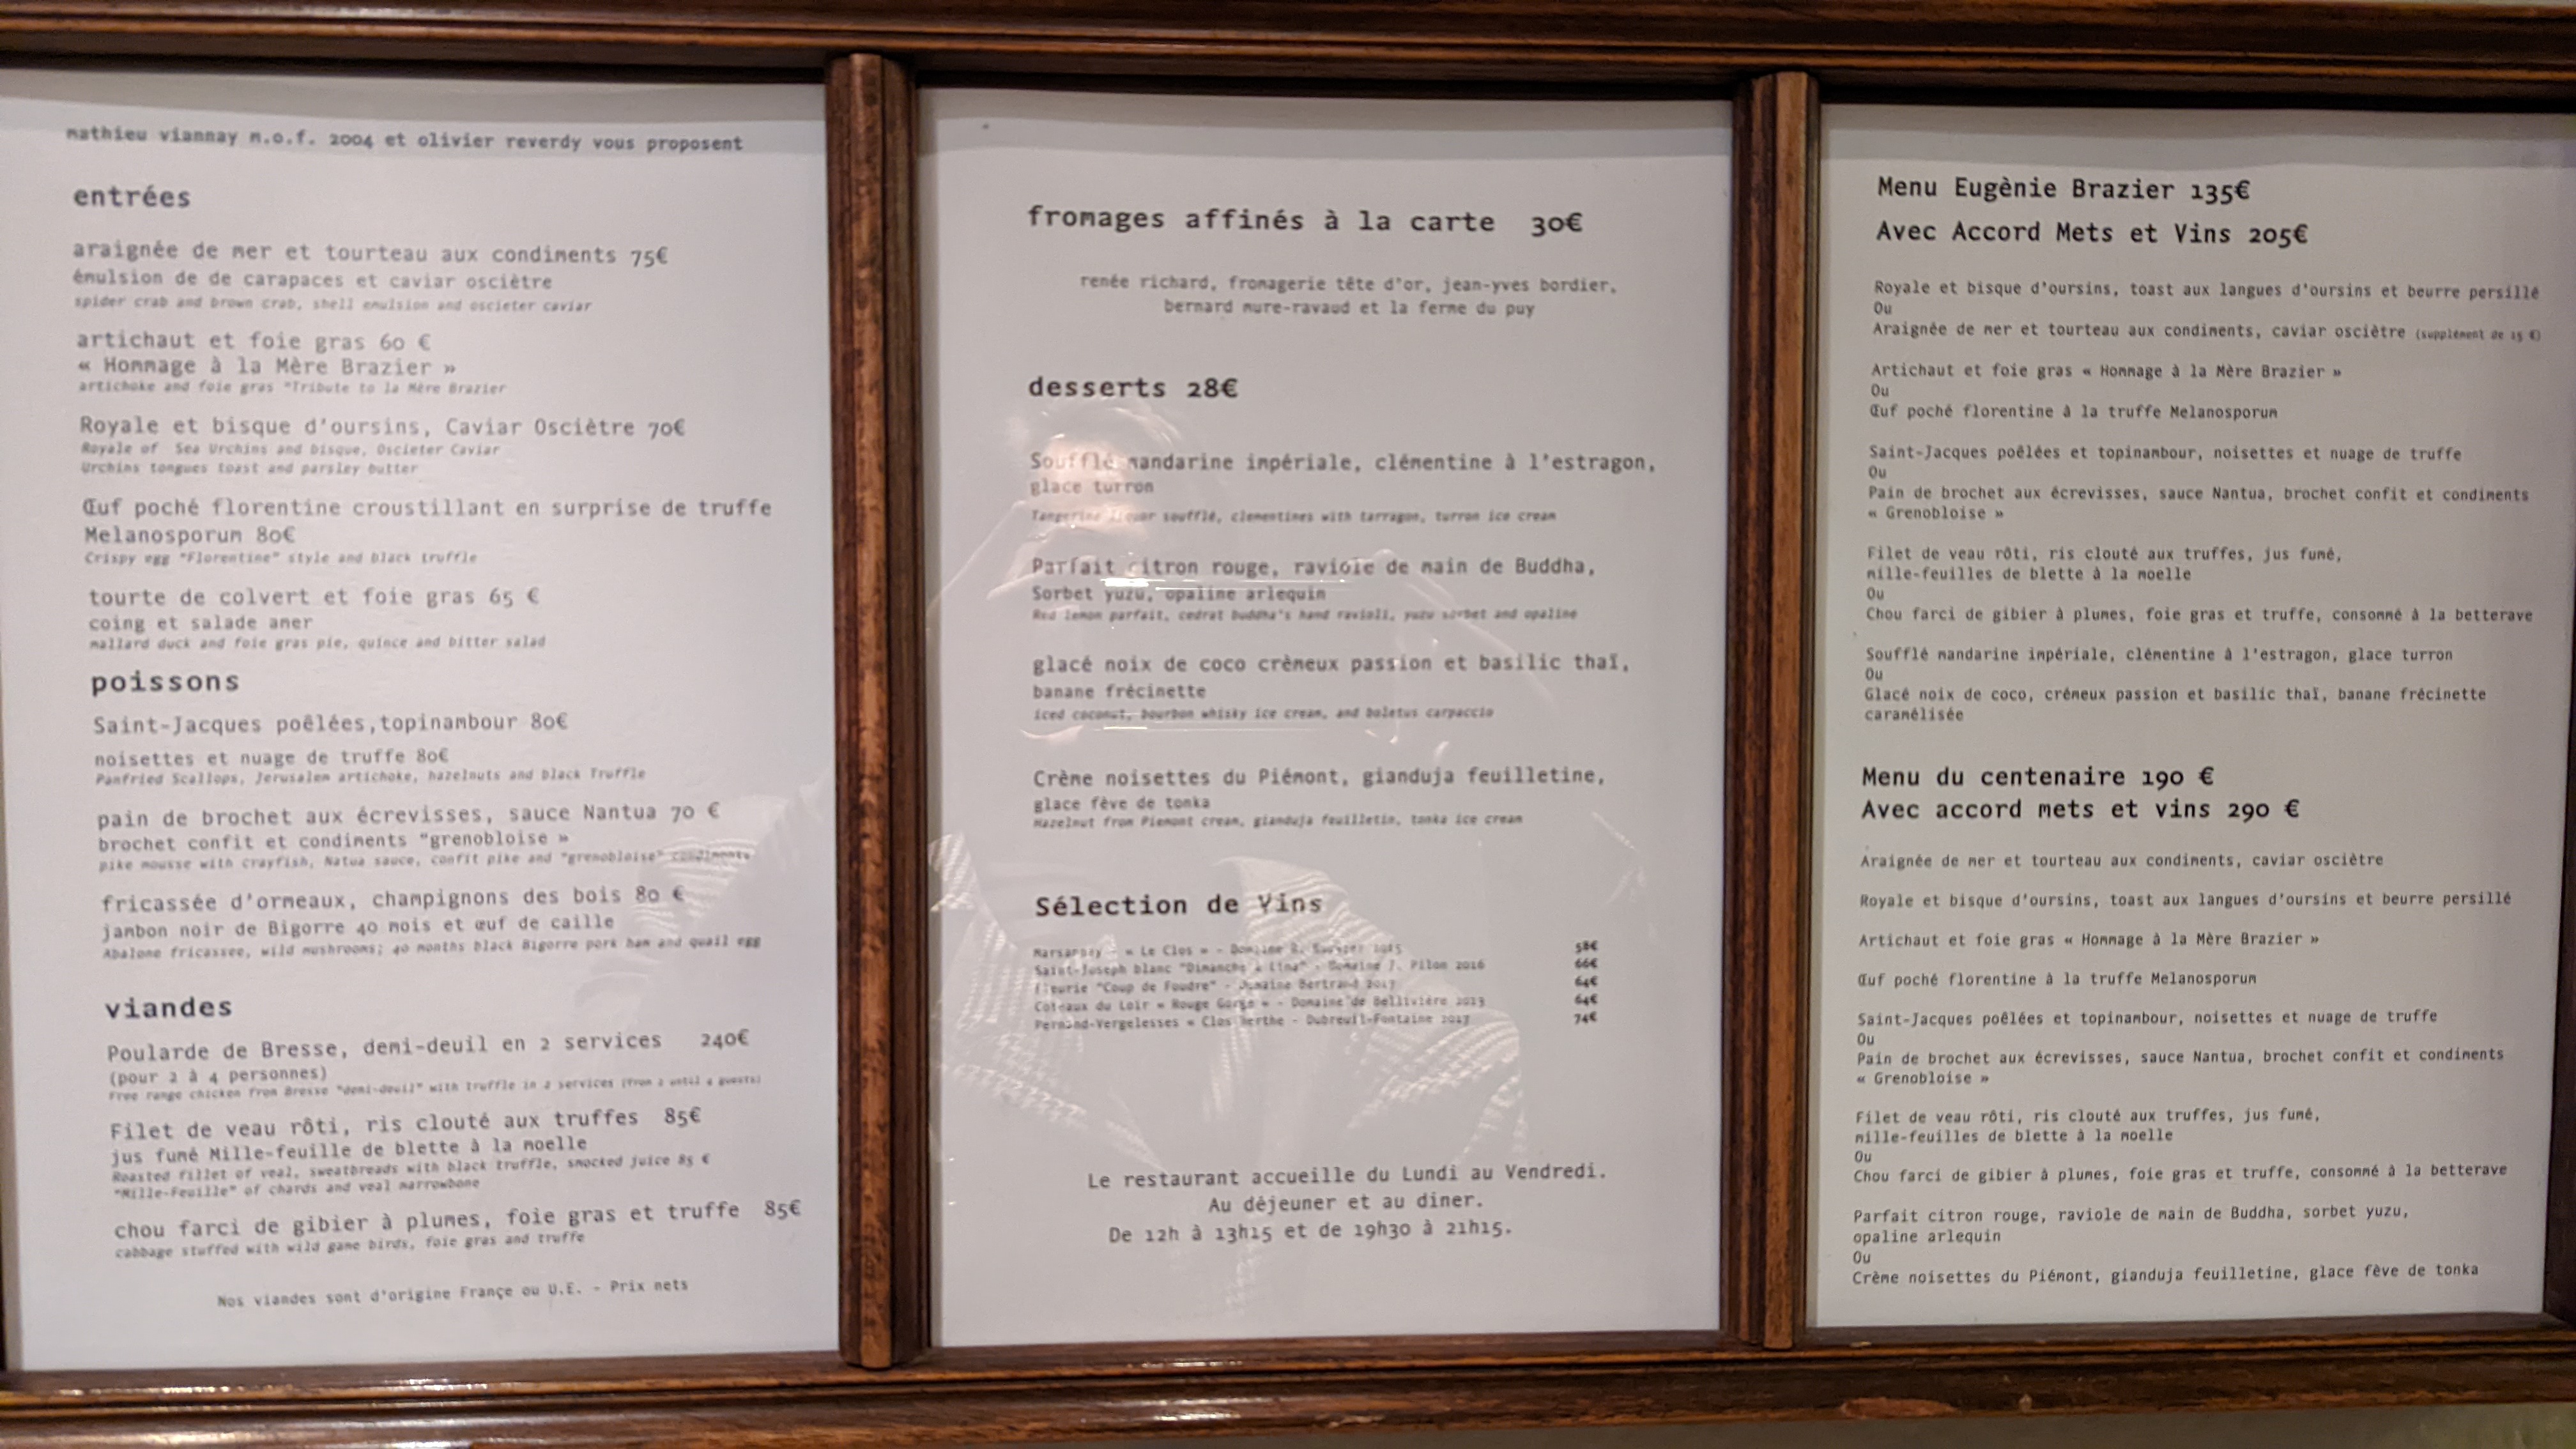 mathieu viannay m.o.f. 2004 et olivier reverdy vous proposent
entrées
araignée de mer et tourteau aux condiments 75€
émulsion de de carapaces et caviar osciètre
spider crab and brown crab, shell emulsion and oscieter caviar
artichaut et foie gras 60 €
« Hommage à la Mère Brazier »
artichoke and foie gras "Tribute to la Mère Brazier
Royale et bisque d'oursins, Caviar Osciètre 70€
Royale of Sea Urchins and bisque, Oscieter Caviar
Urchins tongues toast and parsley butter
Œuf poché florentine croustillant en surprise de truffe
Melanosporum 80€
Crispy egg "Florentine" style and black truffle
tourte de colvert et foie gras 65 €
coing et salade amer
mallard duck and foie gras pie, quince and bitter salad
poissons
Saint-Jacques poêlées,topinambour 80€
noisettes et nuage de truffe 80€
Panfried Scallops, Jerusalem artichoke, hazelnuts and black Truffle
pain de brochet aux écrevisses, sauce Nantua 70 €
brochet confit et condiments "grenobloise »
pike mousse with crayfish, Natua sauce, confit pike and "grenobloise" condiments
fricassée d'ormeaux, champignons des bois 80 €
jambon noir de Bigorre 40 mois et œuf de caille
Abalone fricassee, wild mushrooms; 40 months black Bigorre pork ham and quail egg
viandes
Poularde de Bresse, demi-deuil en 2 services 240€
(pour 2 à 4 personnes)
Free range chicken from Bresse "demi-deuil" with truffle in 2 services (from 2 until 4 guests)
Filet de veau rôti, ris clouté aux truffes 85€
jus fumé Mille-feuille de blette à la moelle
Roasted fillet of veal, sweatbreads with black truffle, smocked juice 85 €
"Mille-Feuille" of chards and veal marrowbone
chou farci de gibier à plumes, foie gras et truffe 85€
cabbage stuffed with wild game birds, foie gras and truffe
Nos viandes sont d'origine Françe ou U.E. - Prix nets
fromages affinés à la carte 30€
renée richard, fromagerie tête d'or, jean-yves bordier,
bernard mure-ravaud et la ferme du puy
desserts 28€
Soufflé mandarine impériale, clémentine à l'estragon,
glace turron
Tangerine liquor soufflé, clementines with tarragon, turron ice cream
Parfait citron rouge, raviole de main de Buddha,
Sorbet yuzu, opaline arlequin
Red lemon parfait, cedrat buddha's hand ravioli, yuzu sorbet and opaline
glacé noix de coco crèmeux passion et basilic thaï,
banane frécinette
iced coconut, bourbon whisky ice cream, and boletus carpaccio
Crème noisettes du Piémont, gianduja feuilletine,
glace fève de tonka
Hazelnut from Piemont cream, gianduja feuilletin, tonka ice cream
Sélection de Vins
Marsannay - « Le Clos » - Domaine R. 2015 58€
Saint-Joseph blanc "Dimanche à Lina" - Domaine J. Pilon 2016 66€
Fleurie "Coup de Foudre" - Domaine Bertrand 2017 64€
Coteaux du Loir « Rouge Gorge » - Domaine de Bellivière 2013 64€
Pernand-Vergelesses « Clos Berthe - Dubreuil-Fontaine 2017 74€
Le restaurant accueille du Lundi au Vendredi.
Au déjeuner et au diner.
De 12h à 13h15 et de 19h30 à 21h15.
Menu Eugènie Brazier 135€
Avec Accord Mets et Vins 205€
Royale et bisque d'oursins, toast aux langues d'oursins et beurre persillé
Ou
Araignée de mer et tourteau aux condiments, caviar osciètre (supplément de 15 €)
Artichaut et foie gras « Hommage à la Mère Brazier »
Ou
Œuf poché florentine à la truffe Melanosporum
Saint-Jacques poêlées et topinambour, noisettes et nuage de truffe
Ou
Pain de brochet aux écrevisses, sauce Nantua, brochet confit et condiments
« Grenobloise »
Filet de veau rôti, ris clouté aux truffes, jus fumé,
mille-feuilles de blette à la moelle
Ou
Chou farci de gibier à plumes, foie gras et truffe, consommé à la betterave
Soufflé mandarine impériale, clémentine à l'estragon, glace turron
Ou
Glacé noix de coco, crémeux passion et basilic thaï, banane frécinette
caramélisée
Menu du centenaire 190 €
Avec accord mets et vins 290 €
Araignée de mer et tourteau aux condiments, caviar osciètre
Royale et bisque d'oursins, toast aux langues d'oursins et beurre persillé
Artichaut et foie gras « Hommage à la Mère Brazier »
Œuf poché florentine à la truffe Melanosporum
Saint-Jacques poêlées et topinambour, noisettes et nuage de truffe
Ou
Pain de brochet aux écrevisses, sauce Nantua, brochet confit et condiments
« Grenobloise »
Filet de veau rôti, ris clouté aux truffes, jus fumé,
mille-feuilles de blette à la moelle
Ou
Chou farci de gibier à plumes, foie gras et truffe, consommé à la betterave
Parfait citron rouge, raviole de main de Buddha, sorbet yuzu,
opaline arlequin
Ou
Crème noisettes du Piémont, gianduja feuilletine, glace fève de tonka